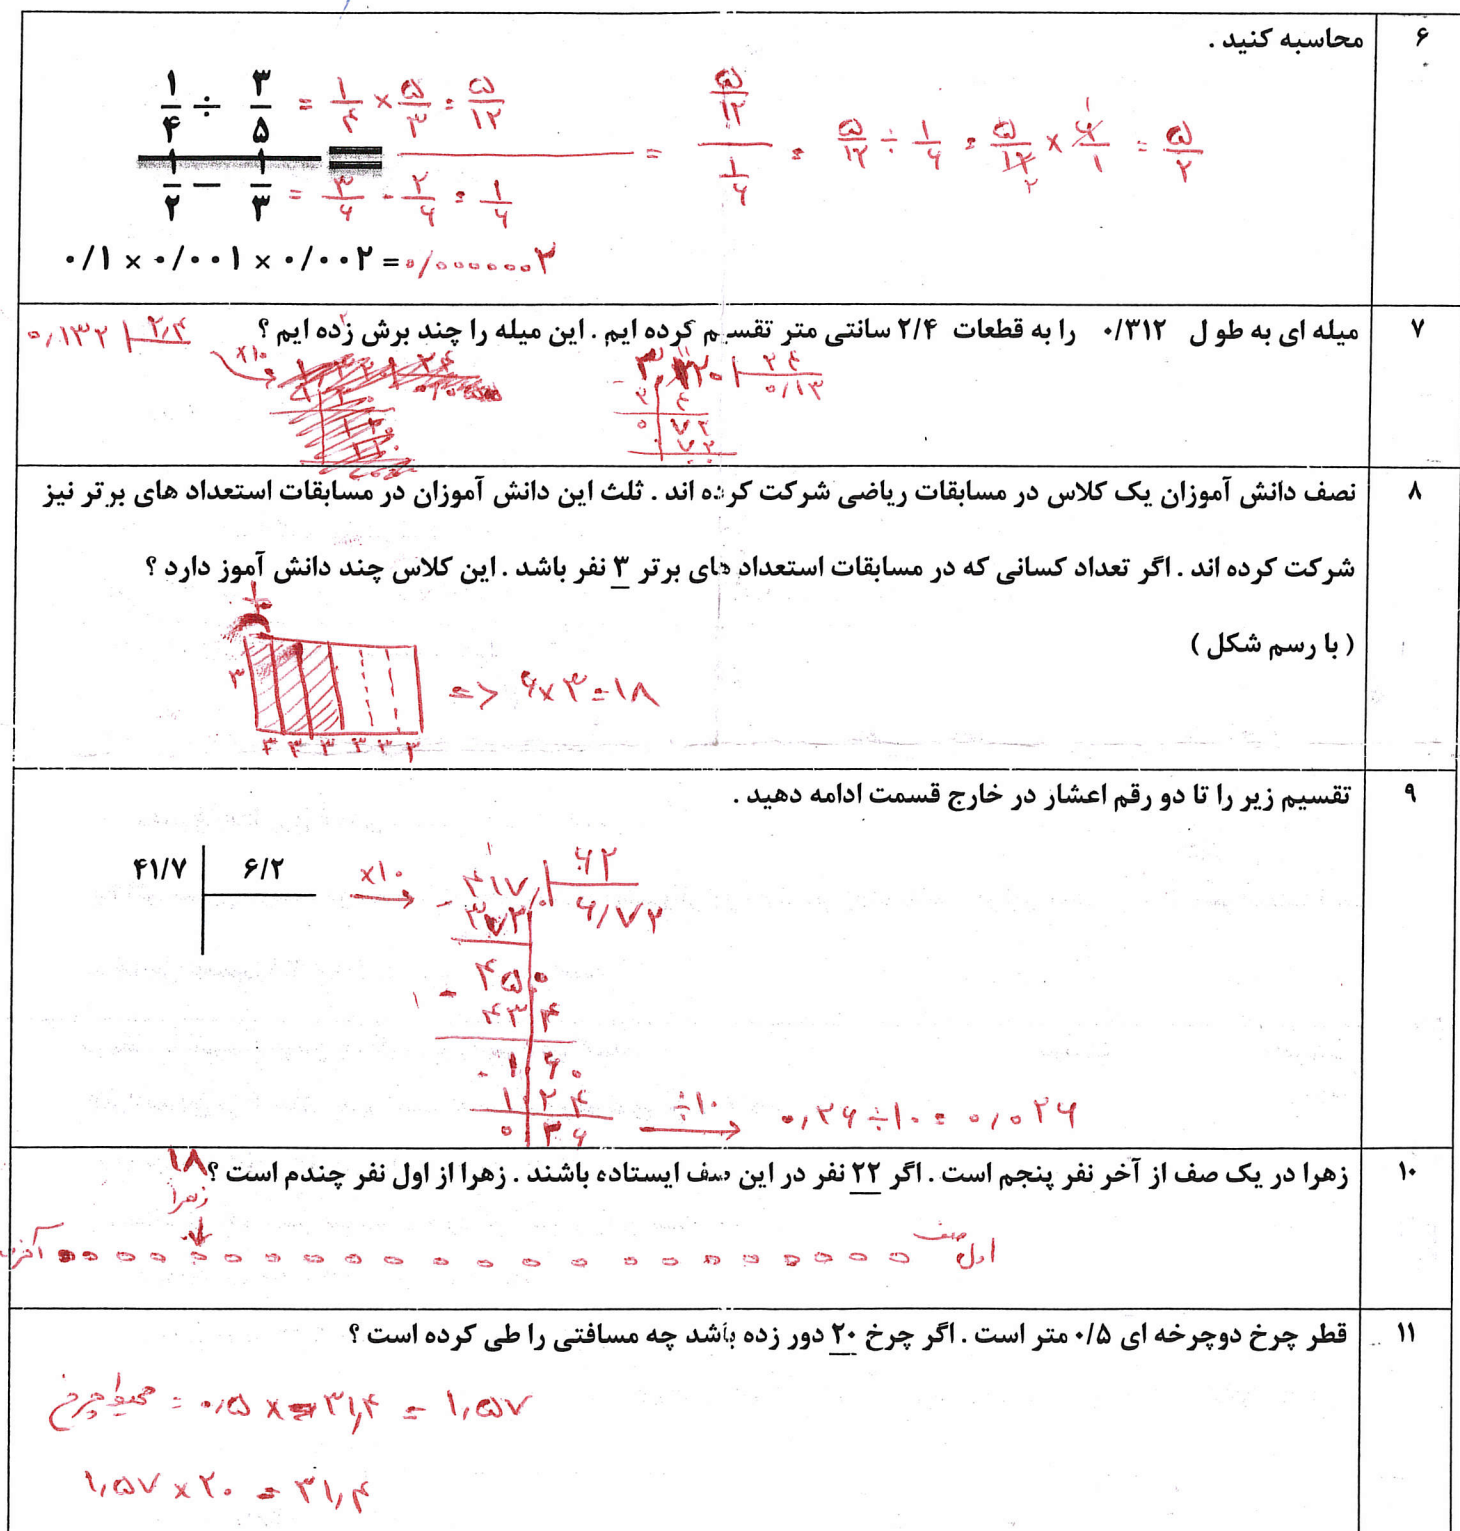 ۶
محاسبه کنید .
۱/۴ ÷ ۳/۵ = ۱/۴ × ۵/۳ = ۵/۱۲
۱/۲ − ۱/۳ = ۳/۶ - ۲/۶ = ۱/۶
= ۵/۱۲ / ۱/۶ = ۵/۱۲ ÷ ۱/۶ = ۵/۱۲ × ۶/۱ = ۵/۲
۰/۱ × ۰/۰۰۱ × ۰/۰۰۲ = ۰/۰۰۰۰۰۰۲
۷
میله ای به طو ل ۰/۳۱۲ را به قطعات ۲/۴ سانتی متر تقسیم کرده ایم . این میله را چند برش زده ایم ؟
۰,۱۳۲ | ۲,۴
×۱۰
۳,۱۲۰ | ۲۴
۰/۱۳
۲ ۴
۰ ۷۲
۷۲
۸
نصف دانش آموزان یک کلاس در مسابقات ریاضی شرکت کرده اند . ثلث این دانش آموزان در مسابقات استعداد های برتر نیز
شرکت کرده اند . اگر تعداد کسانی که در مسابقات استعداد های برتر ۳ نفر باشد . این کلاس چند دانش آموز دارد ؟
( با رسم شکل )
۳
=> ۶×۳=۱۸
۳ ۳ ۳ ۳ ۳ ۳
۹
تقسیم زیر را تا دو رقم اعشار در خارج قسمت ادامه دهید .
۴۱/۷ | ۶/۲
×۱۰
۴۱۷,۰ | ۶۲
۶/۷۲
- ۳۷۲
۴۵۰
- ۴۳۴
۱۶۰
۱۲۴
۰۳۶
÷۱۰
۰,۳۶ ÷۱۰ = ۰,۰۳۶
۱۰
زهرا در یک صف از آخر نفر پنجم است . اگر ۲۲ نفر در این صف ایستاده باشند . زهرا از اول نفر چندم است ؟
۱۸
زهرا
اول صف
آخر
۱۱
قطر چرخ دوچرخه ای ۰/۵ متر است . اگر چرخ ۲۰ دور زده باشد چه مسافتی را طی کرده است ؟
محیط چرخ = ۰,۵ × ۳۱,۴ = ۱,۵۷
۱,۵۷ × ۲۰ = ۳۱,۴